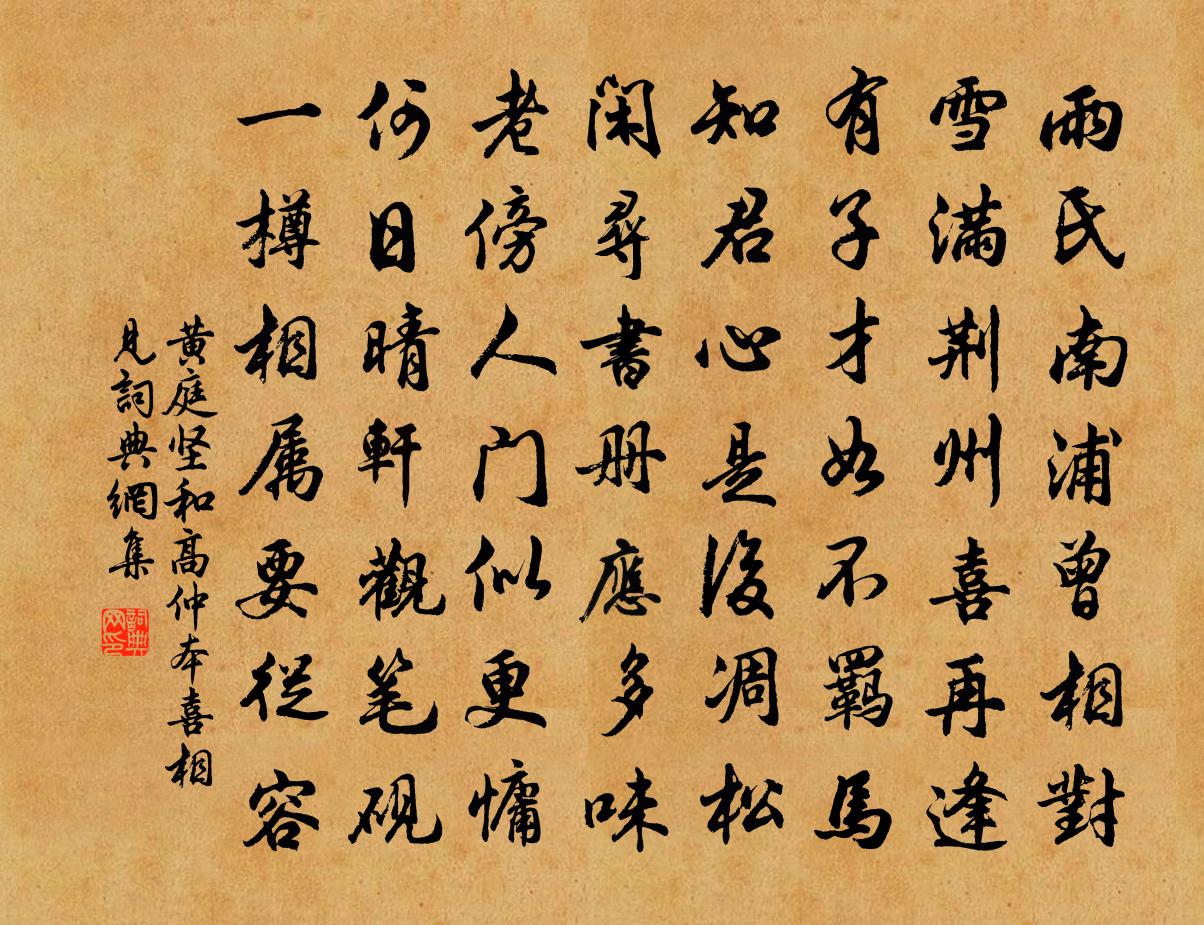 雨氏南浦曾相對
雪滿荆州喜再逢
有子才如不羈馬
知君心是後凋松
閑尋書册應多味
老傍人门似更慵
何日晴軒觀笔硯
一樽相属要從容
黄庭坚和高仲本喜相
見詞典網集
詞典
网印